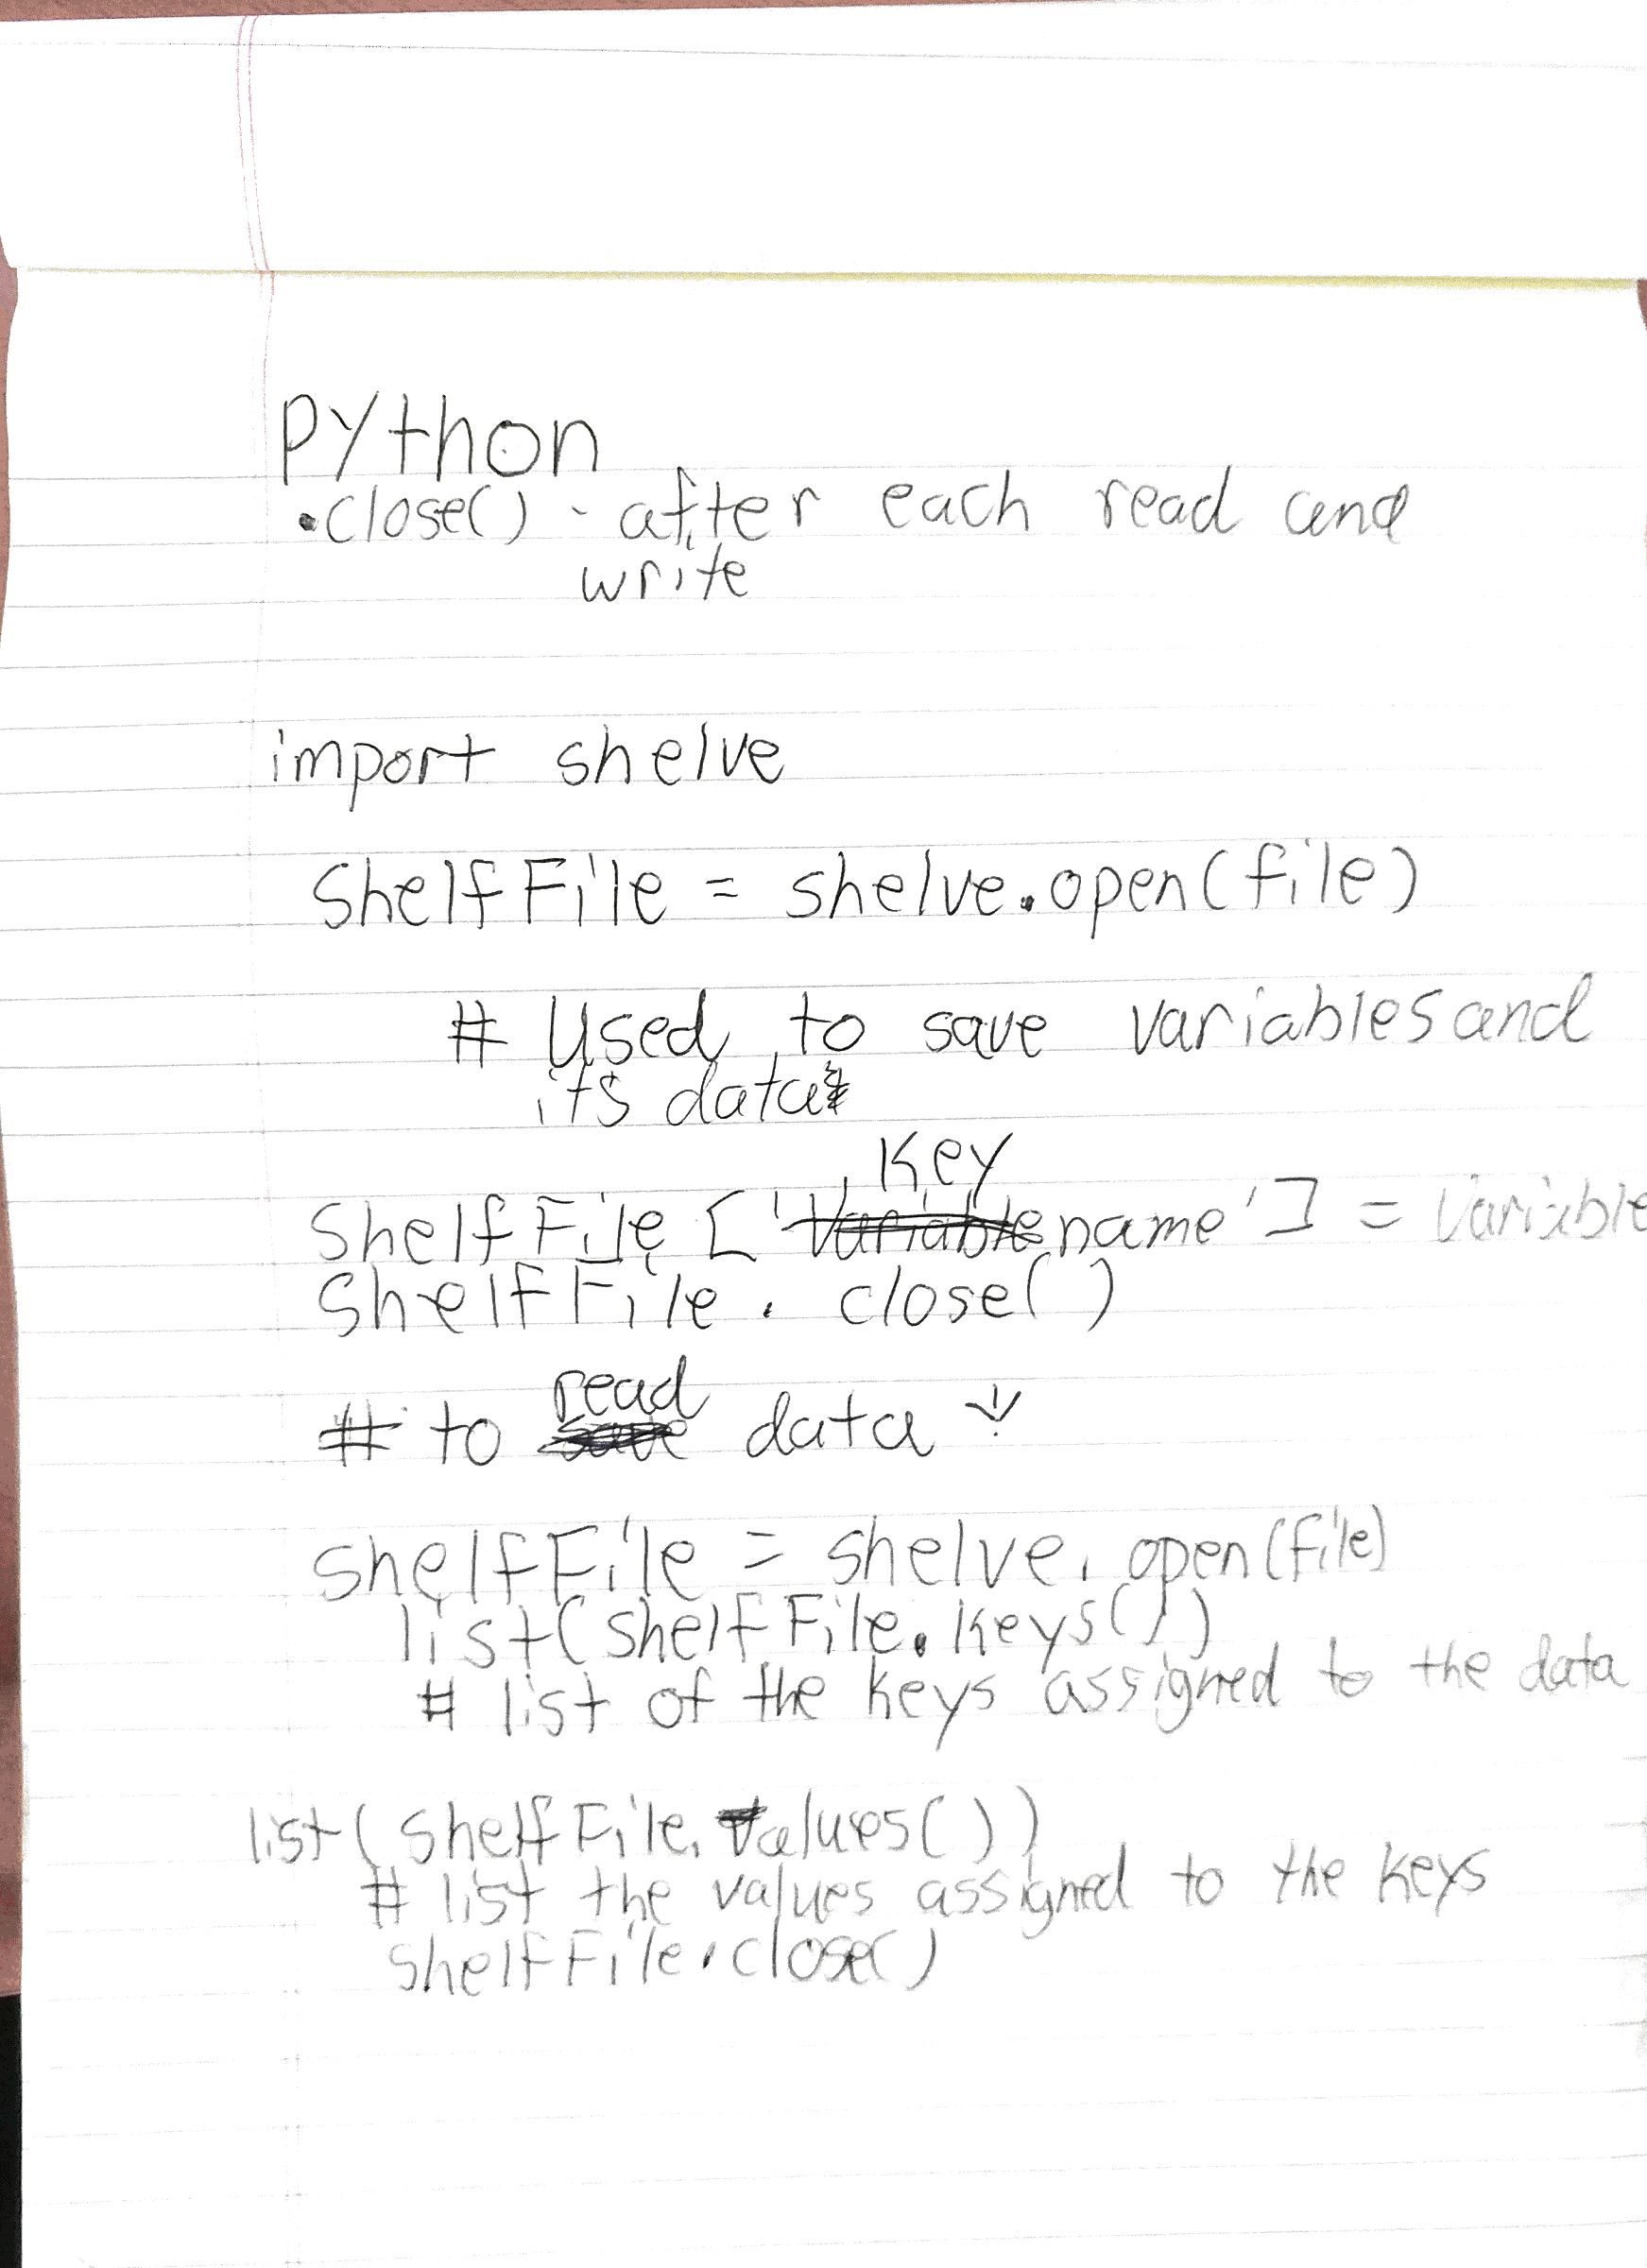 Python
.close() - after each read and
write
import shelve
ShelfFile = shelve.open(file)
# Used to save variables and
its data
Key
ShelfFile ['Variable name'] = Variable
ShelfFile. close()
read
# to save data ↓
shelfFile = shelve. open(file)
list(shelfFile.keys())
# list of the keys assigned to the data
list(shelfFile.values())
# list the values assigned to the keys
shelfFile.close()